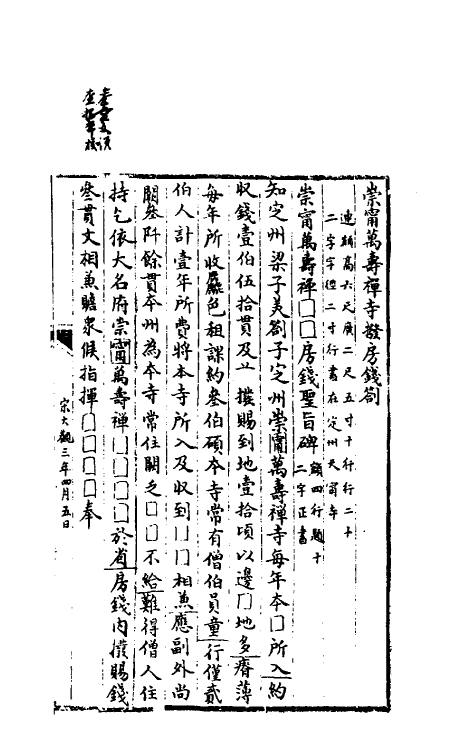 崇甯萬壽禪寺撥房錢劄
連額高六尺廣二尺五寸十行行二十
二字字徑二寸行書在定州天甯寺
崇甯萬壽禪□□房錢聖旨碑
額四行題十
二字正書
知定州梁子美劄子定州崇甯萬壽禪寺每年本□所入約
收錢壹伯伍拾貫及 撥賜到地壹拾頃以邊□地多瘠薄
每年所收 色租課約叄伯碩本寺常有僧伯員童行僅貳
伯人計壹年所費將本寺所入及收到□□相兼應副外尚
闕叄阡餘貫本州為本寺常住闕乏□□不給難得僧人住
持乞依大名府崇甯萬壽禪□□□□於省房錢內撥賜錢
叄貫文相兼贍眾候指揮□□□□奉
宋大觀三年四月五日